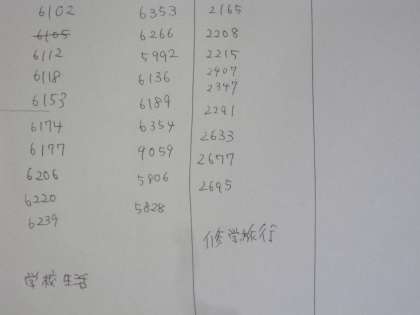 6102
6105
6112
6118
6153
6174
6197
6206
6220
6239
学校生活
6353
6266
5992
6136
6189
6354
9059
5806
5828
2165
2208
2215
2407
2347
2291
2633
2677
2695
修学旅行